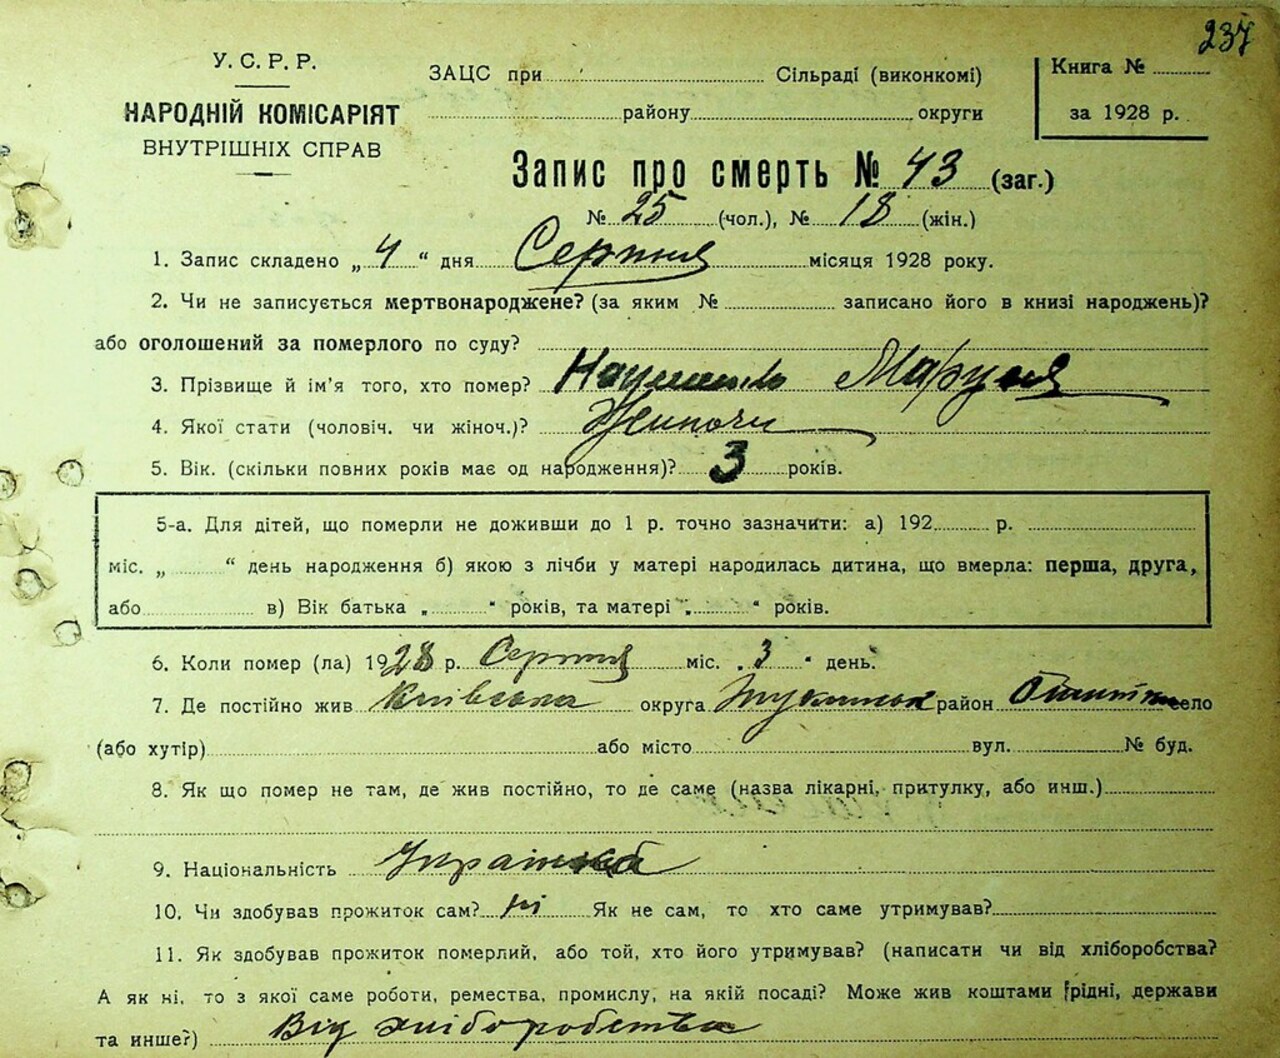 237
У. С. Р. Р.
НАРОДНІЙ КОМІСАРІЯТ
ВНУТРІШНІХ СПРАВ
ЗАЦС при Сільраді (виконкомі)
району округи
Книга №
за 1928 р.
Запис про смерть № 43 (заг.)
№ 25 (чол.), № 18 (жін.)
1. Запис складено „ 4 “ дня Серпня місяця 1928 року.
2. Чи не записується мертвонароджене? (за яким № записано його в книзі народжень)?
або оголошений за померлого по суду?
3. Прізвище й ім'я того, хто помер? Науменко Маруся
4. Якої стати (чоловіч. чи жіноч.)? Жиночи
5. Вік. (скільки повних років має од народження)? 3 років.
5-а. Для дітей, що померли не доживши до 1 р. точно зазначити: а) 192 р.
міс. „ “ день народження б) якою з лічби у матері народилась дитина, що вмерла: перша, друга,
або в) Вік батька „ “ років, та матері „ “ років.
6. Коли помер (ла) 1928 р. Серпня міс. „ 3 “ день.
7. Де постійно жив Київська округа район село
(або хутір) або місто вул. № буд.
8. Як що помер не там, де жив постійно, то де саме (назва лікарні, притулку, або инш.)
9. Національність Українка
10. Чи здобував прожиток сам? ні Як не сам, то хто саме утримував?
11. Як здобував прожиток померлий, або той, хто його утримував? (написати чи від хліборобства?
А як ні, то з якої саме роботи, ремества, промислу, на якій посаді? Може жив коштами рідні, держави
та инше?) Від хліборобства